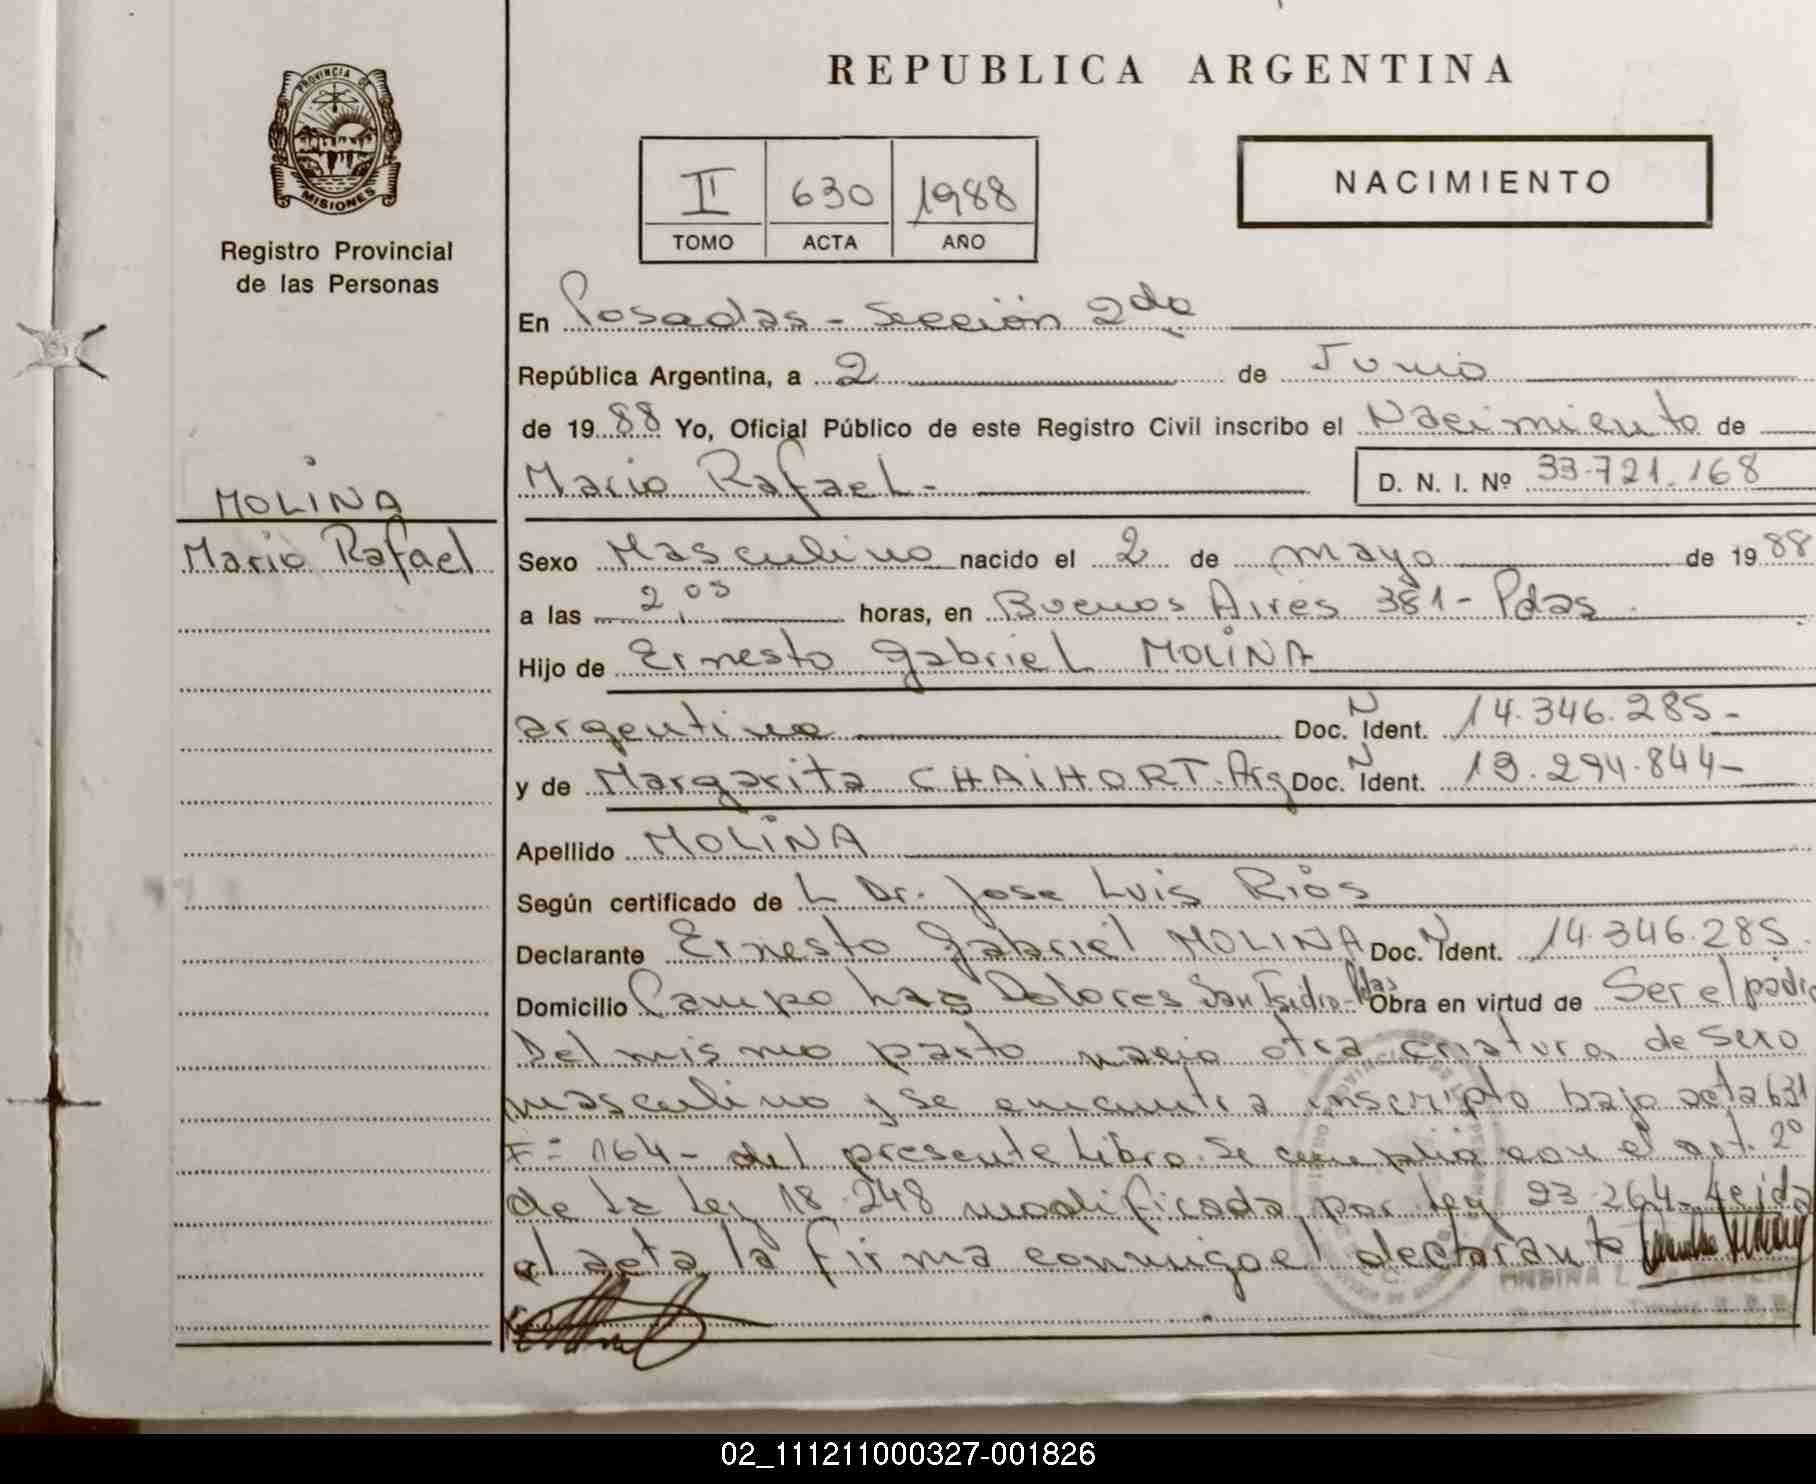 REPUBLICA ARGENTINA
PROVINCIA DE
MISIONES
Registro Provincial
de las Personas
II 630 1988
TOMO ACTA AÑO
NACIMIENTO
En Posadas - Sección 2da
República Argentina, a 2 de Junio
de 1988 Yo, Oficial Público de este Registro Civil inscribo el Nacimiento de
Mario Rafael - D. N. I. Nº 33.721.168
MOLINA
Mario Rafael
Sexo Masculino nacido el 2 de mayo de 1988
a las 2,05 horas, en Buenos Aires 381 - Pdas.
Hijo de Ernesto Gabriel MOLINA
argentino Doc. N Ident. 14.346.285-
y de Margarita CHAIHORT. Arg Doc. N Ident. 13.294.844-
Apellido MOLINA
Según certificado de L Dr. Jose Luis Rios
Declarante Ernesto Gabriel MOLINA Doc. N Ident. 14.346.285.
Domicilio Campo Las Dolores San Isidro-Pdas Obra en virtud de Ser el padre
Del mismo parto nacio otra criatura de sexo
masculino y se encuentra inscripto bajo acta 631
Fº 164 - del presente Libro. Se cumplio con el art. 2º
de la Ley 18.248 modificada por Ley 23.264- Leida
el acta la firma conmigo el declarante
02_111211000327-001826